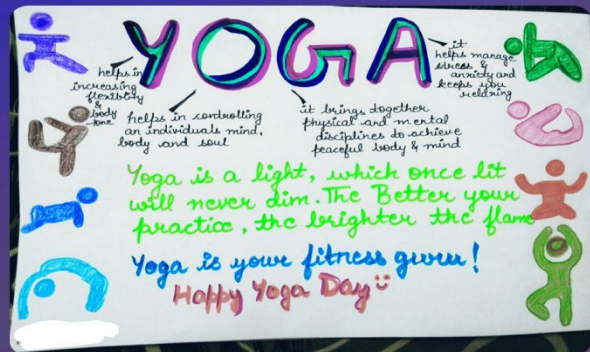 YOGA
helps in
increasing
flexiblity
&
body
tone
helps in controlling
an individuals mind,
body and soul
it brings together
physical and mental
disciplines to achieve
peaceful body & mind
it
helps manage
stress &
anxiety and
keeps you
relaxing
Yoga is a light, which once lit
will never dim. The Better your
practice, the brighter the flame
Yoga is your fitness guru!
Happy Yoga Day